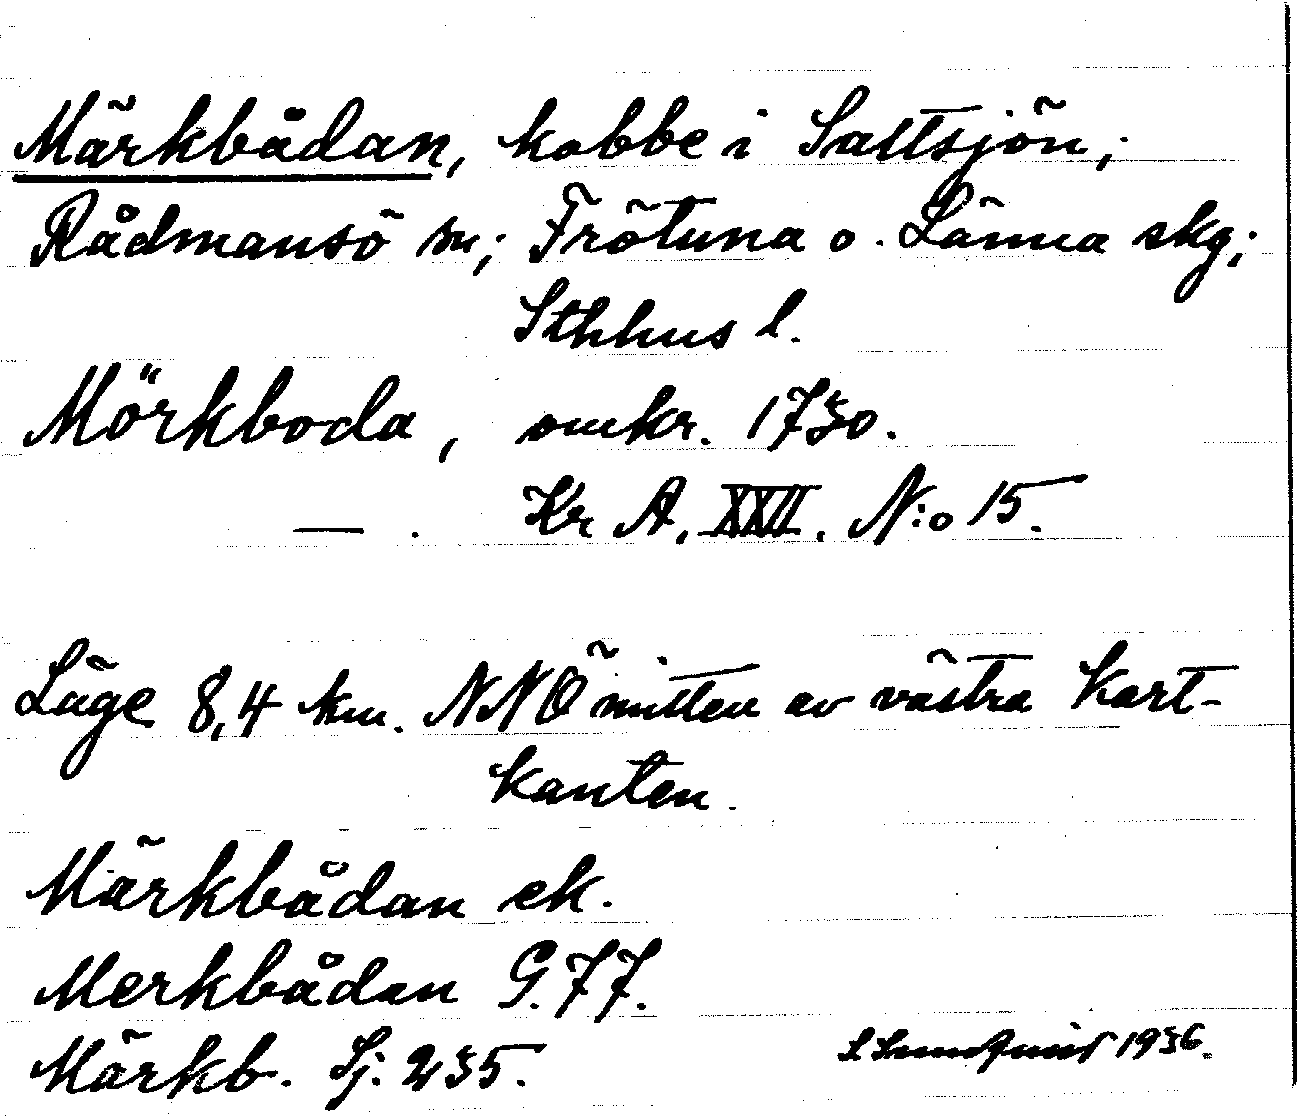 Märkbådan, kobbe i Saltsjön;
Rådmansö sn; Frötuna o. Länna skg;
Sthlms l.
Mörkboda, omkr. 1730.
— . Kr A, XXII. N:o 15.
Läge 8,4 km. NNÖ mitten av västra kart-
kanten.
Märkbådan ek.
Merkbådan G. 77.
Märkb. Sj. 235.
1936.